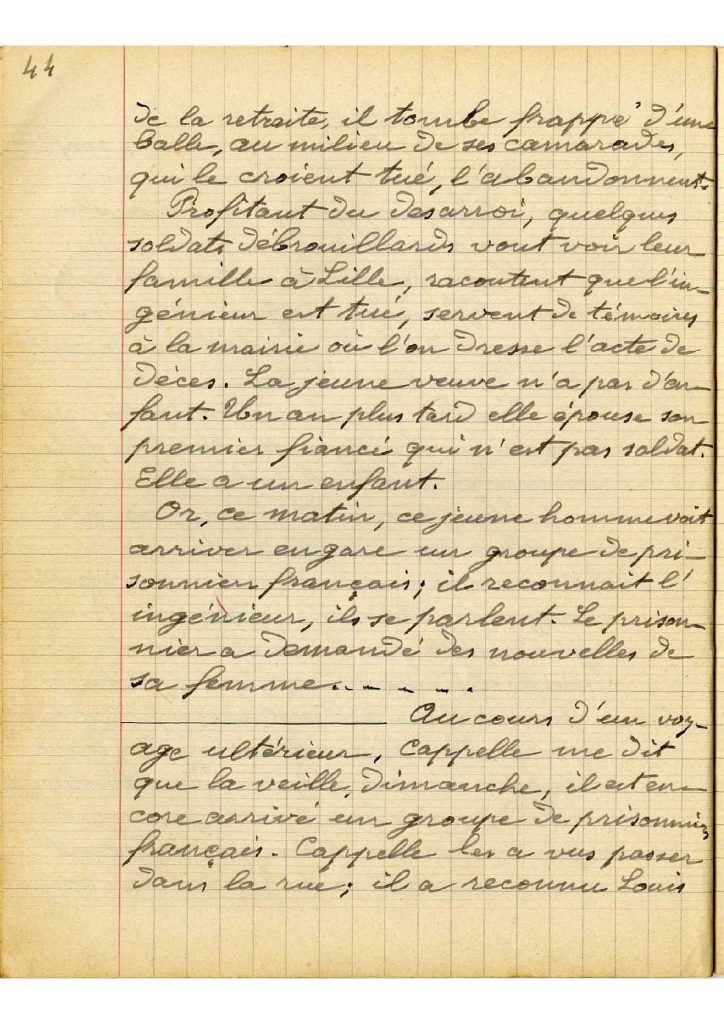 44
de la retraite, il tombe frappé d'une
balle, au milieu de ses camarades,
qui le croient tué, l'abandonnent.
Profitant du désarroi, quelques
soldats débrouillards vont voir leur
famille à Lille, racontent que l'in-
génieur est tué, servent de témoins
à la mairie où l'on dresse l'acte de
décès. La jeune veuve n'a pas d'en-
fant. Un an plus tard elle épouse son
premier fiancé qui n'est pas soldat.
Elle a un enfant.
Or, ce matin, ce jeune homme voit
arriver en gare un groupe de pri-
sonniers français; il reconnait l'
ingénieur, ils se parlent. Le prison-
nier a demandé des nouvelles de
sa femme......
Au cours d'un voy-
age ultérieur, Cappelle me dit
que la veille, dimanche, il est en-
core arrivé un groupe de prisonniers
français. Cappelle les a vus passer
dans la rue; il a reconnu Louis